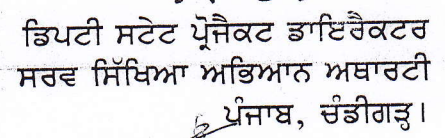 ਡਿਪਟੀ ਸਟੇਟ ਪ੍ਰੋਜੈਕਟ ਡਾਇਰੈਕਟਰ
ਸਰਵ ਸਿੱਖਿਆ ਅਭਿਆਨ ਅਥਾਰਟੀ
ਪੰਜਾਬ, ਚੰਡੀਗੜ੍ਹ।